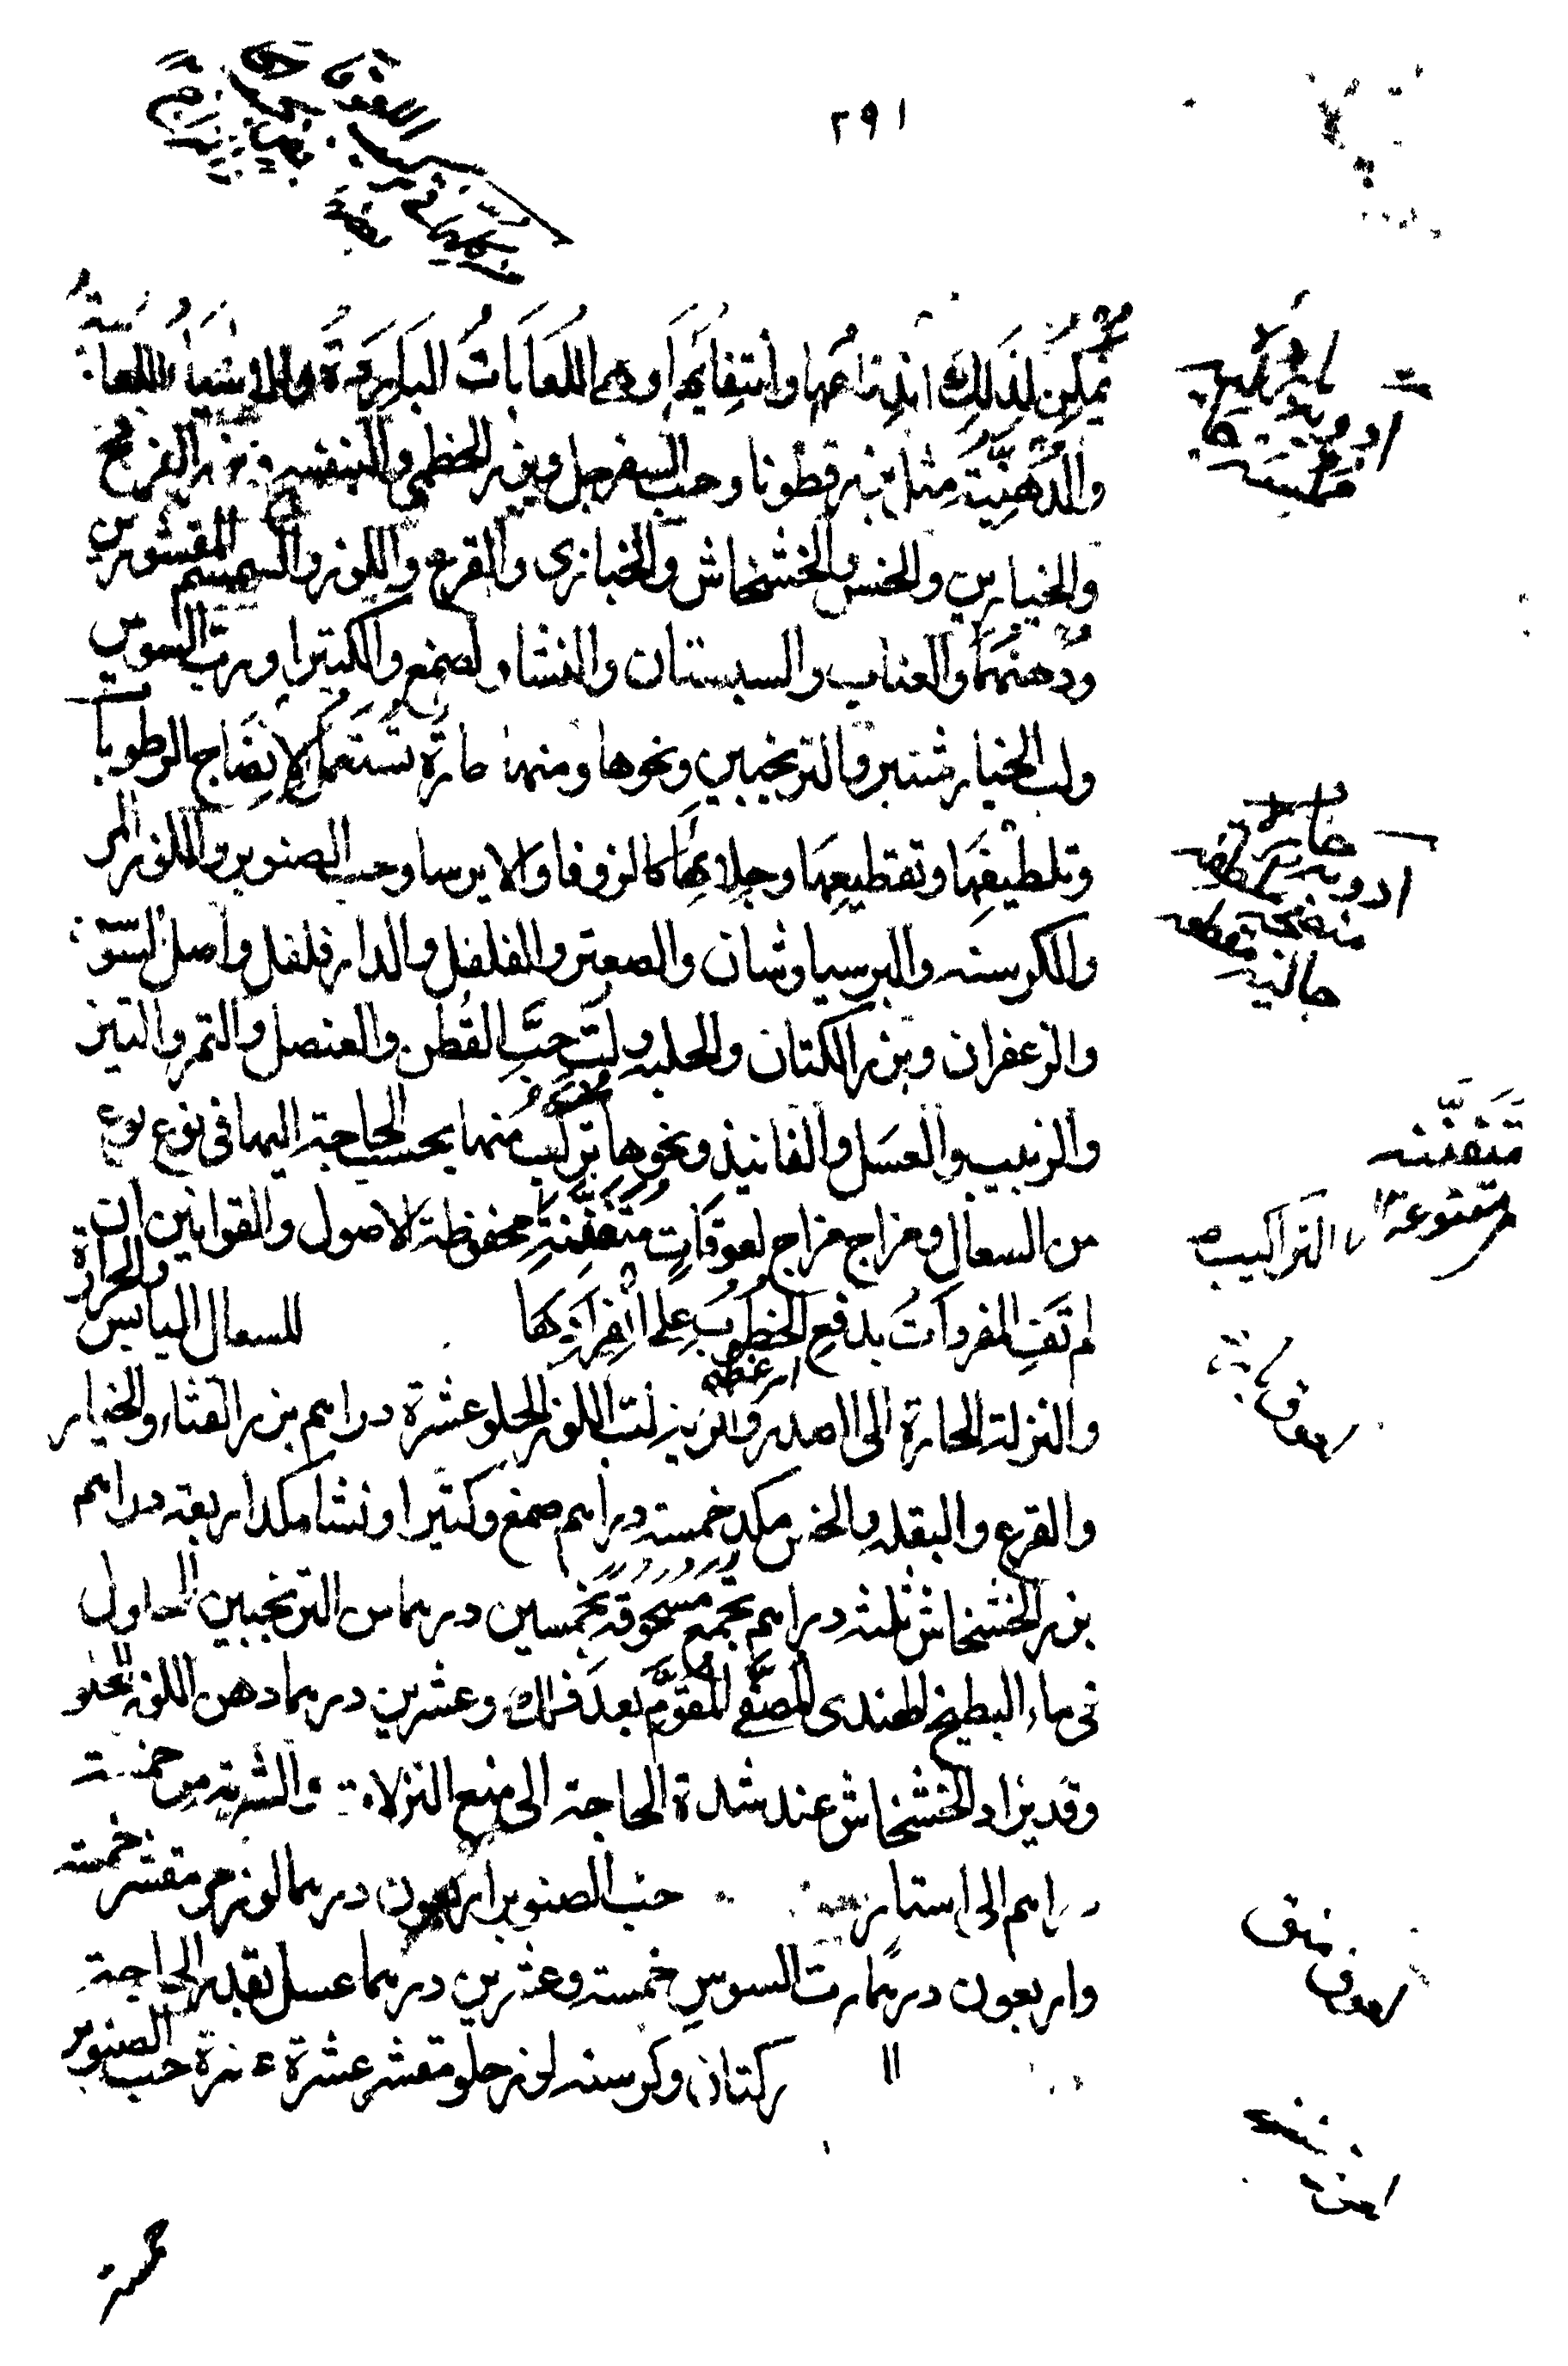 ٢٩١
يُمكِن لِذَلِكَ ابتداعها وانتِفائِها وهى اللعَابَاتُ البَارِدَةُ والاشياءُ اللعابيةُ
والدُهنِيَّةُ مثل بزر قطونا وحب السفرجل وبزر الخطمى والبنفسج وبزر الفرفخ
والخيارين والخس والخشخاش والخبازى والقرع واللوز والسمسم المقشورين
ودهنهما والعناب والسبستان والنشا والصمغ والكثيرا ورب السوس
ولب الخيارشنبر والترنجبين ونحوها ومنها حارة تستعمل لانضاج الرطوبات
وتلطيفِهَا وتقطيعِهَا وجلائِهَا كالزوفا والايرسا وحب الصنوبر واللوز المر
والكرسنه والبرسياوشان والصعتر والفلفل والدارفلفل واصل السوس
والزعفران وبزر الكتان والحلبه ولب حَبِّ القُطن والعنصل والتمر والتين
والزبيب والعسَل والفانيذ ونحوها تركب منها بحسب الحاجة اليها فى نوع نوع
من السعال ومزاج مزاج لعوقات متفننةِ محفوظة الاصول والقوانين ان
لم تَفِ المفردَاتُ بدفع الخطوب على انفِرَادِهَا للسعال اليابس والحرارة
والنزلة الحارة الى الصدر والرية لب اللوز الحلو عشرة دراهم بزر القثاء والخيار
والقرع والبقله والخس مكد خمسة دراهم صمغ وكثيرا ونشا مكد اربعة دراهم
بزر الخشخاش ثلثه دراهم تجمع مسحوقة بخمسين درهما من الترنجبين المحلول
فى ماء البطيخ الهندى المصفَّى المقوَّم بعد ذلك وعشرين درهما دهن اللوز الحلو
وقد يزاد الخشخاش عند شدة الحاجة الى منع النزلات والشربة من خمسة
دراهم الى استار حب الصنوبر اربعون درهما لوز مر مقشر خمسة
واربعون درهما رب السوس خمسة وعشرين درهما عسل بقدر الحاجة
بزر كتان وكرسنه لوز حلو مقشر عشرة عشرة حب الصنوبر
ادوية
حارة
ادوية
منضجة مقطعه
جاليه
متفننه
متنوعة التراكيب
لعوق
لعوق منق